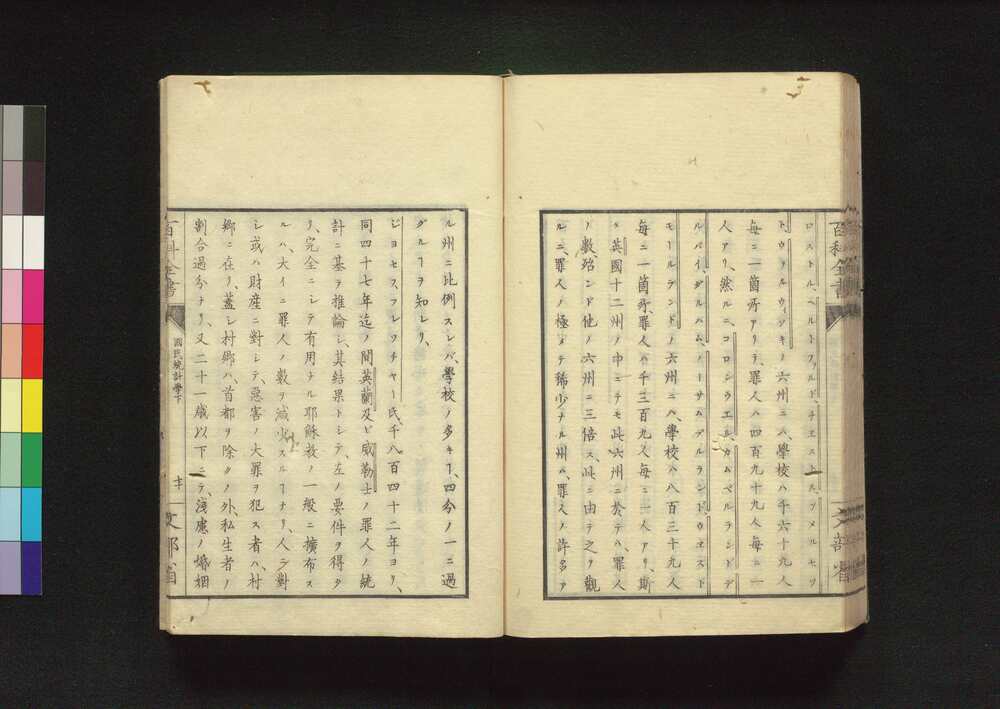 ロストル、ヘルトフヲルド、エス、ソメルセツ
ト、ウヲルウィツキノ六州ニハ、學校ハ千六十九人
毎ニ一箇所アリテ、罪人ハ四百九十九人毎ニ一
人アリ、然ルニ、コロンウエル、カムベルランドデ
ルバイ、デルハム、ノーサムデルランド、ウエスト
モールランドノ六州ニハ、學校ハ八百三十九人
毎ニ一箇所、罪人ハ千三百九人毎ニ一人アリ、斯
ク英國十二州ノ中ニテモ此六州ニ於テハ、罪人
ノ數、殆ンド他ノ六州ニ三倍ス、此ニ由テ之ヲ觀
ルニ、罪人ノ極メテ稀少ナル州ハ、罪人ノ許多ナ
百科全書
文部省
ル州ニ比例スレバ、學校ノ多キヿ、四分ノ一ニ過
グルヿヲ知レリ、
ジヨセフ、フレツチヤー氏、千八百四十二年ヨリ、
同四十七年迄ノ間英蘭及ビ威勒士ノ罪人ノ統
計ニ基ヲ推論シ、其結果トシテ、左ノ要件ヲ得タ
リ、完全ニシテ有用ナル耶穌教ノ一般ニ擴布ス
ルハ、大イニ罪人ノ數ヲ減少スルヿナリ、人ニ對
シ或ハ財産ニ對シテ、惡害ノ大罪ヲ犯ス者ハ、村
郷ニ在リ、蓋シ村郷ハ、首都ヲ除クノ外、私生者ノ
割合過分ナリ、又二十一歳以下ニテ、淺慮ノ婚姻
百科全書
國民統計學下
十一
文部省